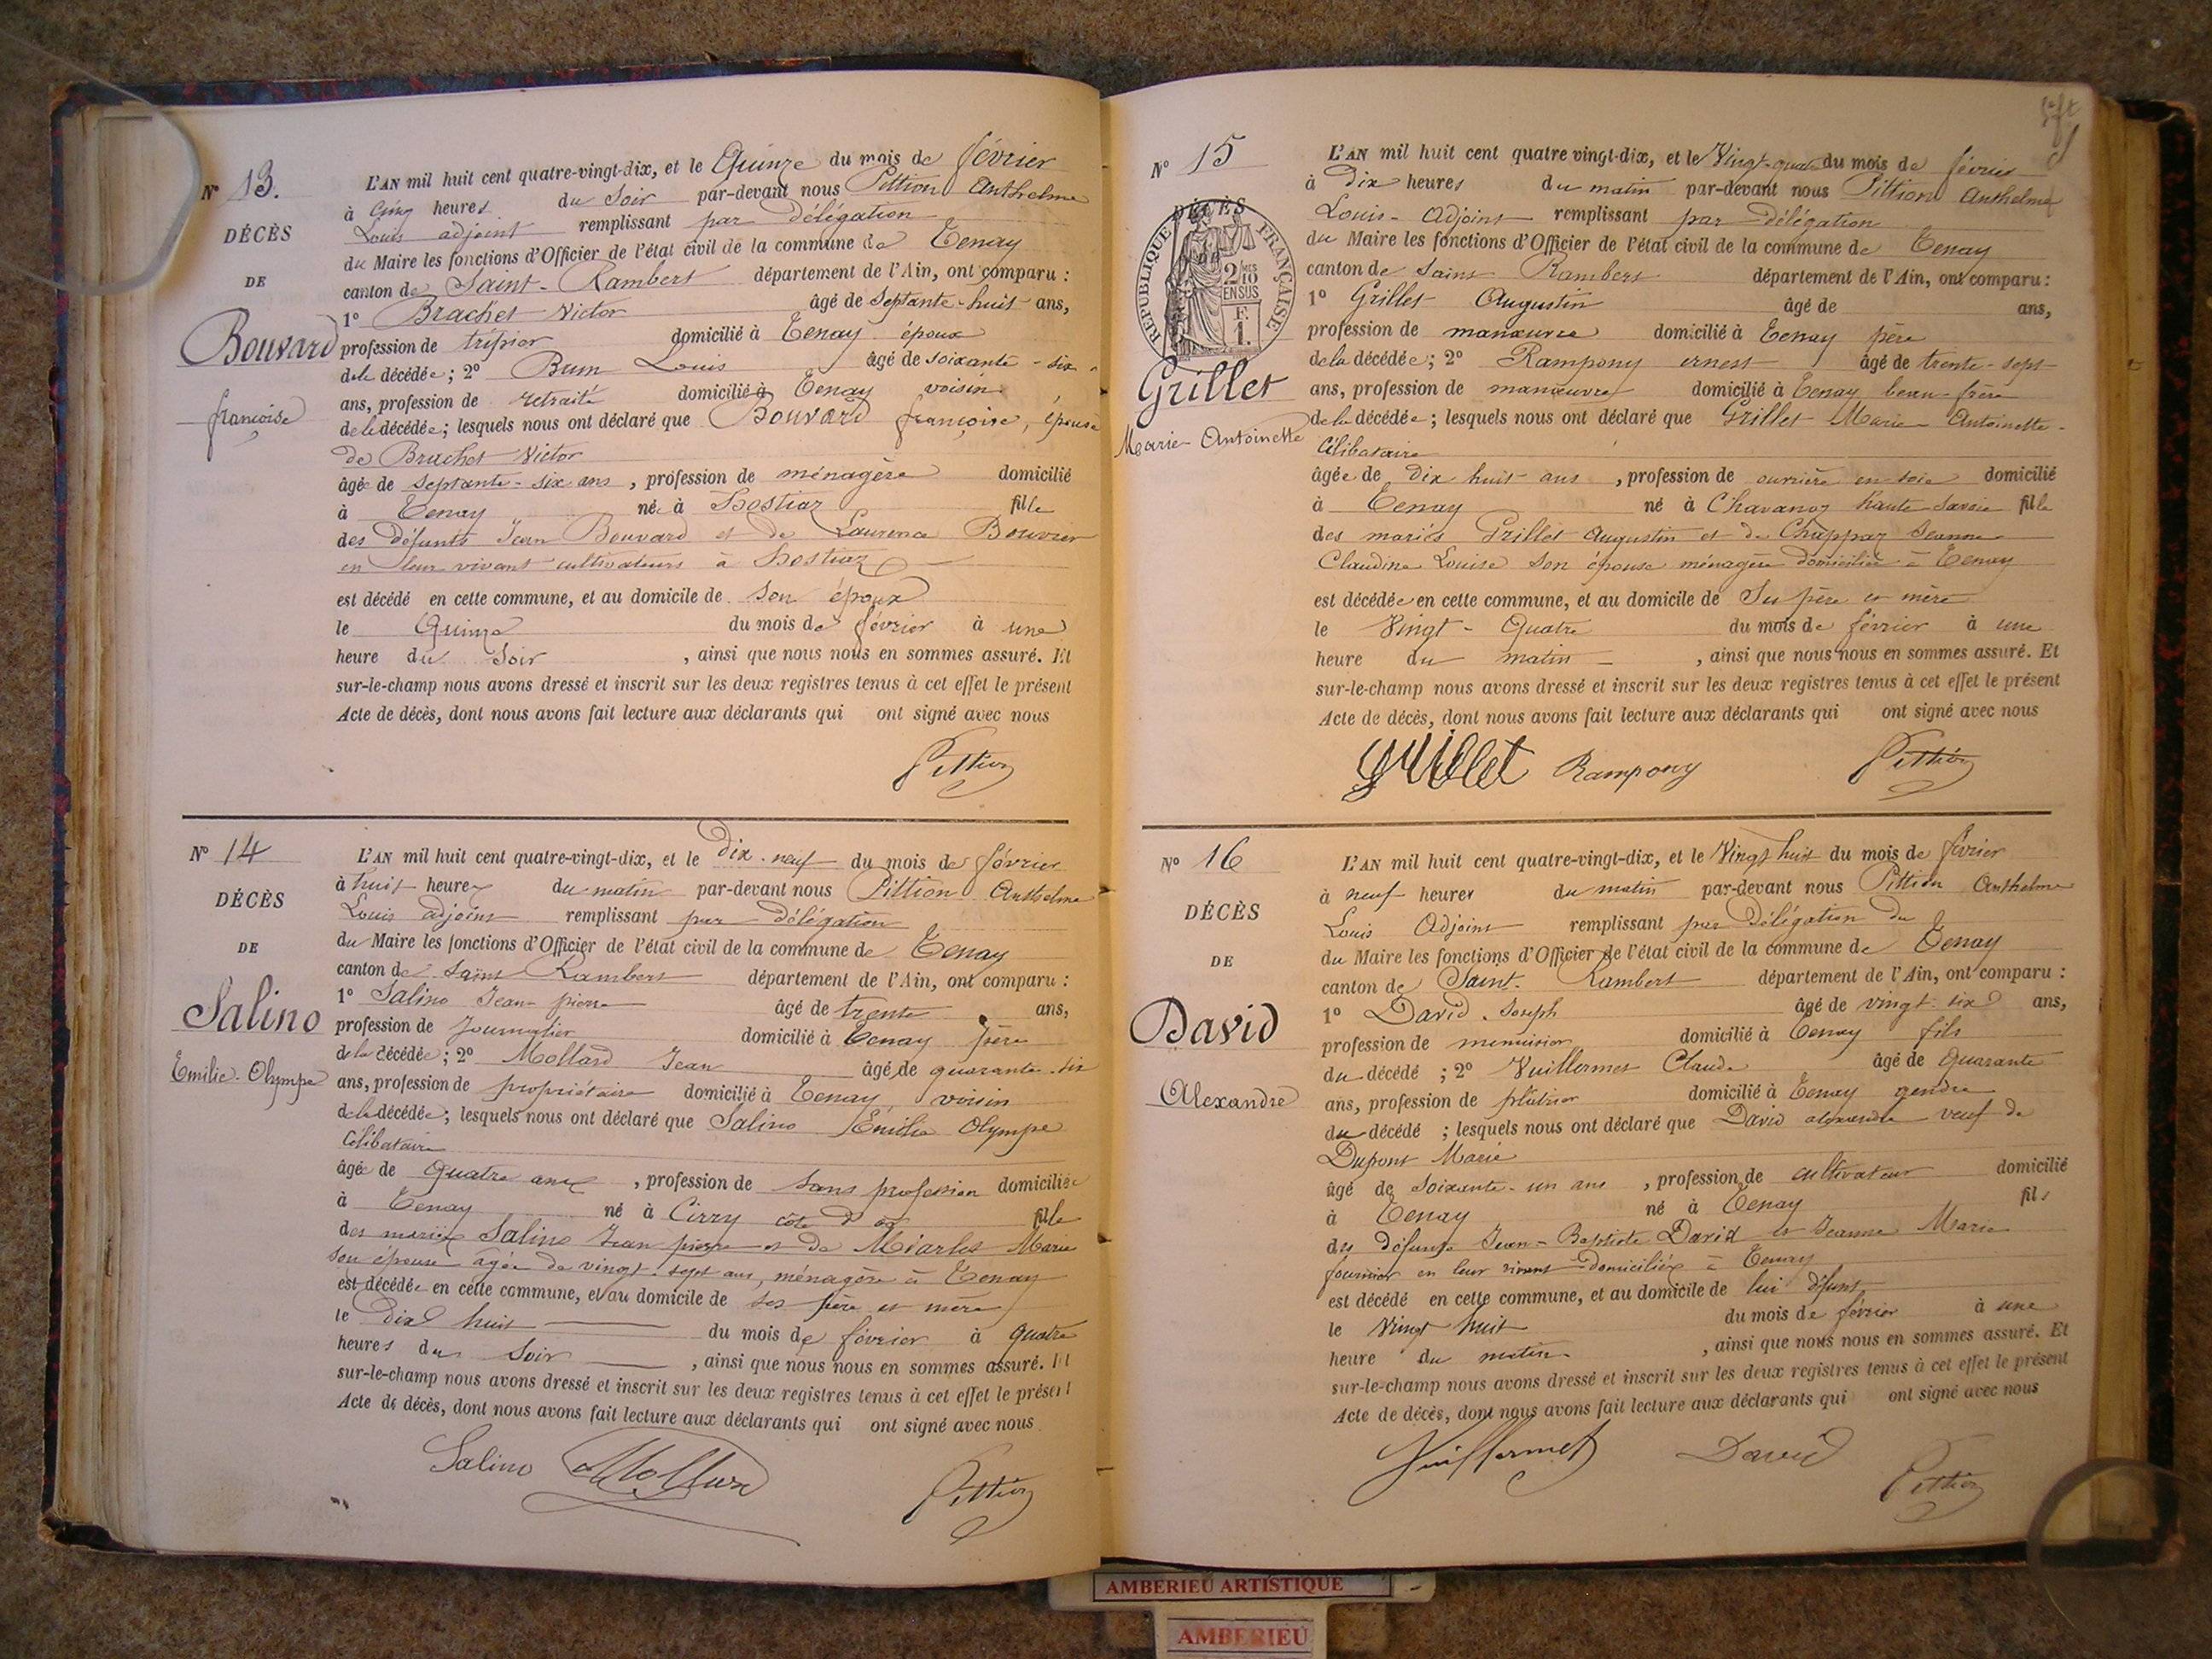 N° 13.
DÉCÈS
DE
Bouvard
françoise
L'AN mil huit cent quatre-vingt-dix, et le Quinze du mois de février
à Cinq heures du Soir par-devant nous Pittion Anthelme
Louis adjoint remplissant par délégation
du Maire les fonctions d'Officier de l'état civil de la commune de Tenay
canton de Saint-Rambert département de l'Ain, ont comparu :
1° Brachet Victor âgé de Septante-huit ans,
profession de tripier domicilié à Tenay époux
de la décédée ; 2° Brun Louis âgé de soixante-six
ans, profession de retraité domicilié à Tenay voisin
de la décédée; lesquels nous ont déclaré que Bouvard françoise, épouse
de Brachet Victor
âgée de septante-six ans, profession de ménagère domicilié
à Tenay née à Hostiaz fille
des défunts Jean Bouvard et de Laurence Bouvier
en leur vivant cultivateurs à Hostiaz
est décédé en cette commune, et au domicile de son époux
le Quinze du mois de février à une
heure du Soir, ainsi que nous nous en sommes assuré. Et
sur-le-champ nous avons dressé et inscrit sur les deux registres tenus à cet effet le présent
Acte de décès, dont nous avons fait lecture aux déclarants qui ont signé avec nous
Pittion
N° 14
DÉCÈS
DE
Salino
Emilie-Olympe
L'AN mil huit cent quatre-vingt-dix, et le dix-neuf du mois de février
à huit heures du matin par-devant nous Pittion Anthelme
Louis adjoint remplissant par délégation
du Maire les fonctions d'Officier de l'état civil de la commune de Tenay
canton de Saint Rambert département de l'Ain, ont comparu :
1° Salino Jean-pierre âgé de trente ans,
profession de Journalier domicilié à Tenay père
de la décédée; 2° Mollard Jean âgé de quarante-six
ans, profession de propriétaire domicilié à Tenay voisin
de la décédée; lesquels nous ont déclaré que Salino Emilie Olympe
Célibataire
âgée de Quatre ans, profession de sans profession domiciliée
à Tenay né à Cirry côte d'or fille
des mariés Salino Jean pierre et de Miarles Marie
son épouse âgée de vingt-sept ans, ménagère à Tenay
est décédée en cette commune, et au domicile de ses père et mère
le Dix huit du mois de février à quatre
heures du Soir, ainsi que nous nous en sommes assuré. Et
sur-le-champ nous avons dressé et inscrit sur les deux registres tenus à cet effet le présent
Acte de décès, dont nous avons fait lecture aux déclarants qui ont signé avec nous
Salino Mollard Pittion
N° 15
RÉPUBLIQUE FRANÇAISE
DÉCÈS
2 MES
10
EN SUS
F.
1.
Grillet
Marie-Antoinette
L'AN mil huit cent quatre vingt-dix, et le Vingt-quatre du mois de février
à Dix heures du matin par-devant nous Pittion Anthelme
Louis-Adjoint remplissant par délégation
du Maire les fonctions d'Officier de l'état civil de la commune de Tenay
canton de Saint Rambert département de l'Ain, ont comparu :
1° Grillet Augustin âgé de ans,
profession de manœuvre domicilié à Tenay père
de la décédée; 2° Rampony ernest âgé de trente-sept
ans, profession de manœuvre domicilié à Tenay beau-frère
de la décédée; lesquels nous ont déclaré que Grillet Marie-Antoinette-
Célibataire
âgée de dix huit ans, profession de ouvrière en soie domicilié
à Tenay né à Chavanoz haute-Savoie fille
des mariés Grillet Augustin et de Chappaz Jeanne
Claudine Louise son épouse ménagère domiciliée à Tenay
est décédée en cette commune, et au domicile de Ses père et mère
le Vingt-Quatre du mois de février à une
heure du matin, ainsi que nous nous en sommes assuré. Et
sur-le-champ nous avons dressé et inscrit sur les deux registres tenus à cet effet le présent
Acte de décès, dont nous avons fait lecture aux déclarants qui ont signé avec nous
Grillet Rampony Pittion
N° 16
DÉCÈS
DE
David
Alexandre
L'AN mil huit cent quatre-vingt-dix, et le Vingt huit du mois de février
à neuf heures du matin par-devant nous Pittion Anthelme
Louis Adjoint remplissant par délégation du
du Maire les fonctions d'Officier de l'état civil de la commune de Tenay
canton de Saint-Rambert département de l'Ain, ont comparu :
1° David Joseph âgé de vingt-six ans,
profession de menuisier domicilié à Tenay fils
du décédé ; 2° Vuillermet Claude âgé de Quarante
ans, profession de plâtrier domicilié à Tenay gendre
du décédé ; lesquels nous ont déclaré que David alexandre veuf de
Dupont Marie
âgé de soixante-un ans, profession de cultivateur domicilié
à Tenay né à Tenay fils
des défunts Jean-Baptiste David et Jeanne Marie
fournier en leur vivant domiciliés à Tenay
est décédé en cette commune, et au domicile de lui défunt
le Vingt huit du mois de février à une
heure du matin, ainsi que nous nous en sommes assuré. Et
sur-le-champ nous avons dressé et inscrit sur les deux registres tenus à cet effet le présent
Acte de décès, dont nous avons fait lecture aux déclarants qui ont signé avec nous
Vuillermet David Pittion
AMBERIEU ARTISTIQUE
AMBERIEU